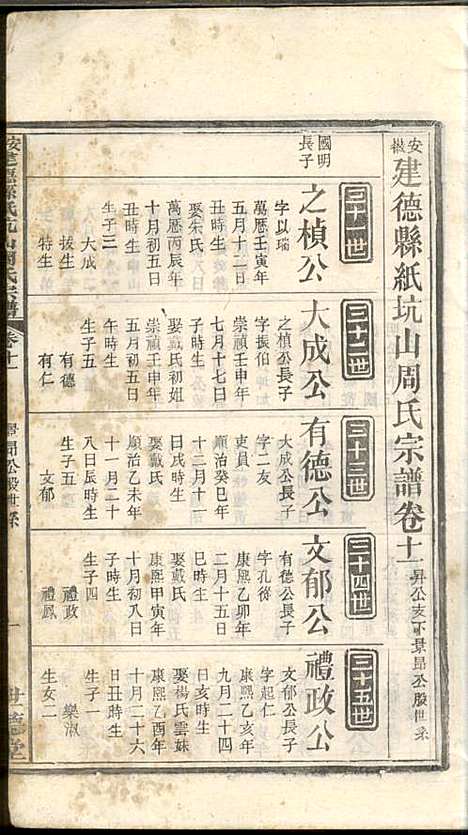 安徽建德縣紙坑山周氏宗譜卷十一昇公支下景昌公股世系
三十一世
國明長子
之楨公
字以瑞
萬曆壬寅年
五月十二日
丑時生
娶朱氏
萬曆丙辰年
十月初五日
丑時生
生子三
大成
拔生
特生
三十二世
大成公
之楨公長子
字振伯
崇禎壬申年
七月十七日
酉時生
娶戴氏初姐
崇禎壬申年
五月初五日
午時生
生子五
有德
有仁
三十三世
有德公
大成公長子
字二友
吏員
順治癸巳年
十二月十一
日戌時生
娶戴氏
順治乙未年
十一月二十
八日辰時生
生子五
文郁
三十四世
文郁公
有德公長子
字孔從
康熙乙卯年
二月十五日
巳時生
娶戴氏
康熙甲寅年
十月初八日
子時生
生子四
禮政
禮鳳
三十五世
禮政公
文郁公長子
字起仁
康熙
九月二十四
日亥時生
娶楊氏雲妹
康熙乙酉年
十月二十六
日丑時生
生子一
樂淑
生女二
安建德縣紙坑山周氏宗譜
卷十一
景昌公股世系
一
世德堂